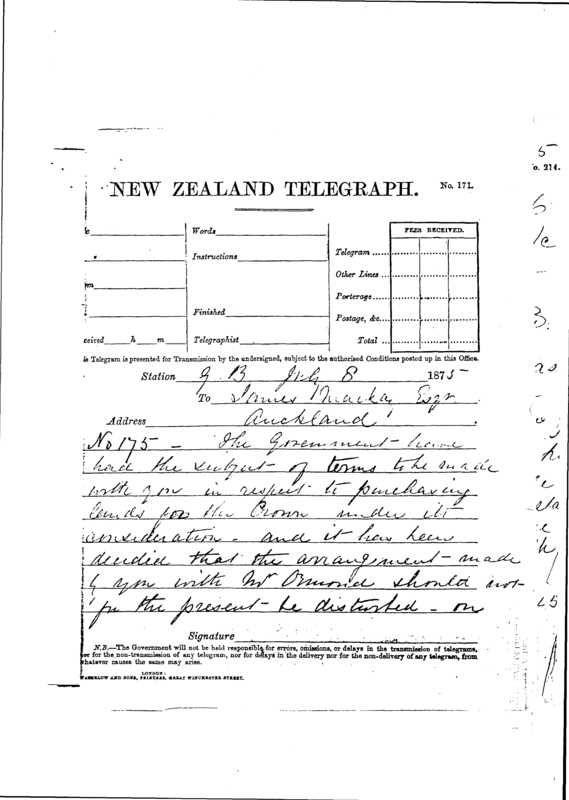 NEW ZEALAND TELEGRAPH. No. 171.
Words
Instructions
Finished
Telegraphist
FEES RECEIVED.
Telegram
Other Lines
Porterage
Postage, &c.
Total
ceived h m
is Telegram is presented for Transmission by the undersigned, subject to the authorised Conditions posted up in this Office.
Station G B July 8 1875
To James Mackay Esqr
Address Auckland
No 175 - The Government have
had the subject of terms to be made
with you in respect to purchasing
lands for the Crown under its
consideration - and it has been
decided that the arrangement made
by you with Mr Ormond should not
for the present be disturbed - on
Signature
N.B.—The Government will not be held responsible for errors, omissions, or delays in the transmission of telegrams,
or for the non-transmission of any telegram, nor for delays in the delivery nor for the non-delivery of any telegram, from
whatever causes the same may arise.
LONDON:
WATERLOW AND SONS, PRINTERS, GREAT WINCHESTER STREET.
5
o. 214.
3.
25